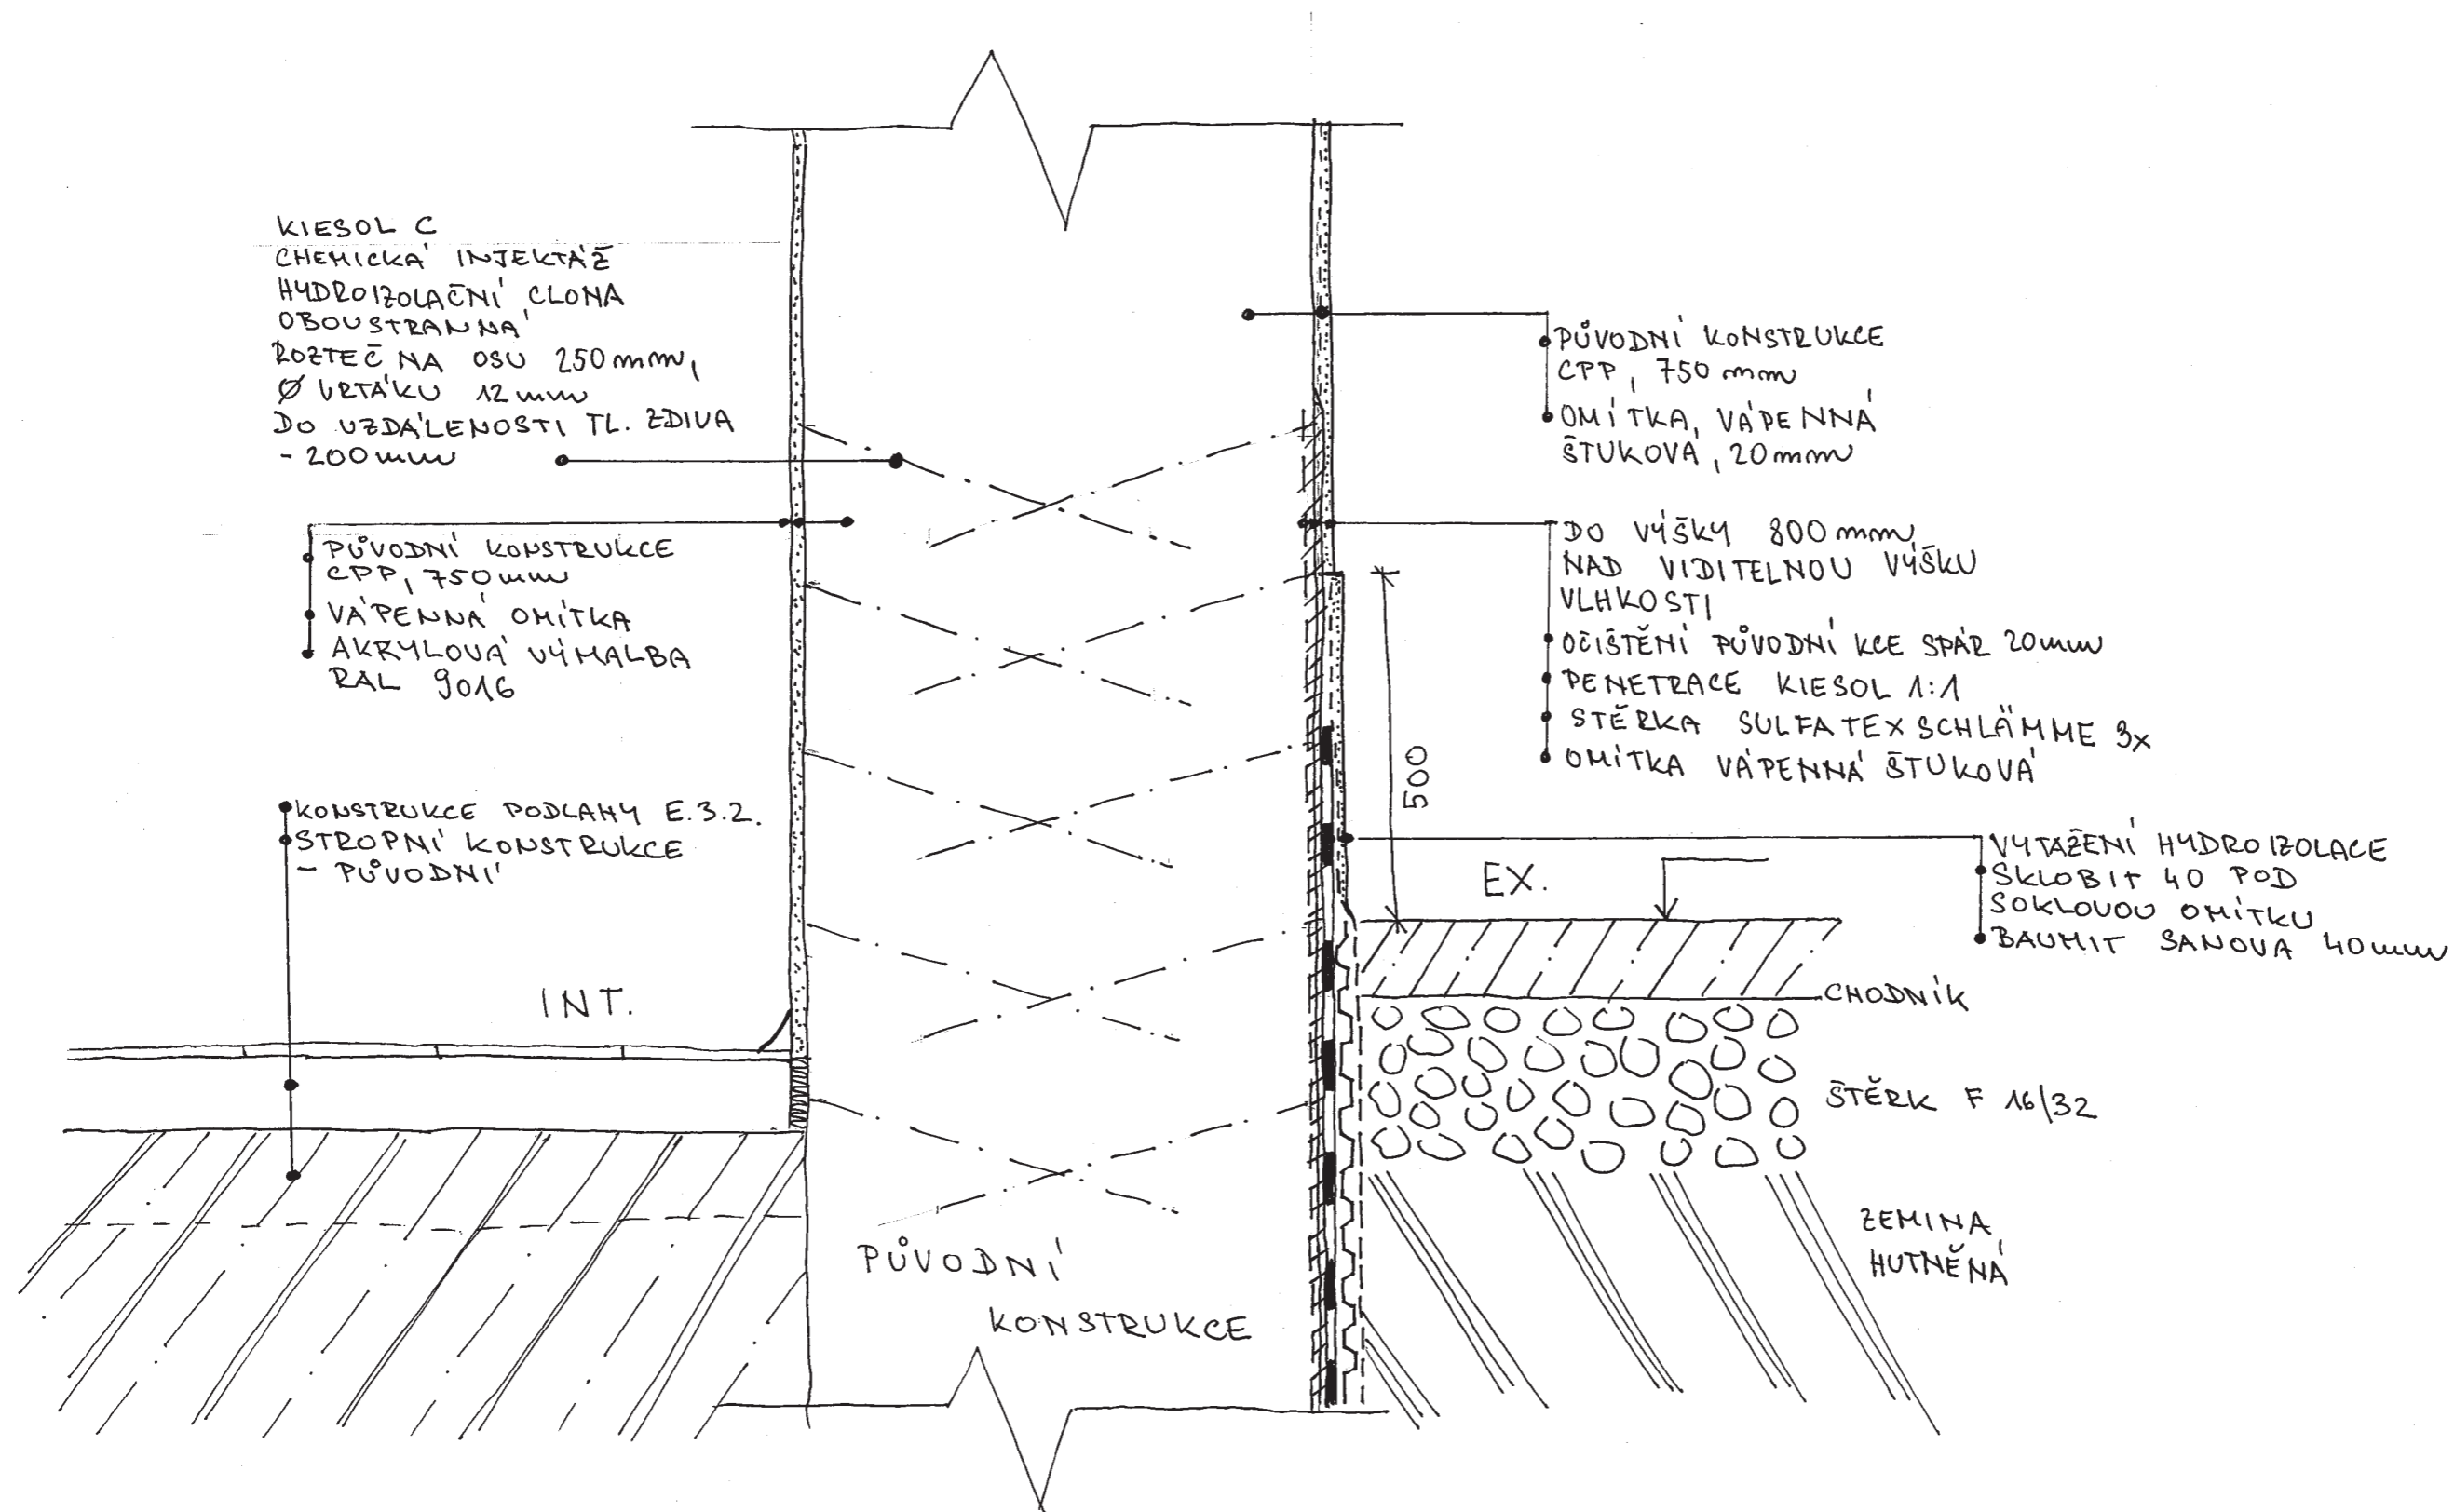 KIESOL C
CHEMICKÁ INJEKTÁŽ
HYDROIZOLAČNÍ CLONA
OBOUSTRANNÁ
ROZTEČ NA OSU 250 mm,
Ø VRTÁKU 12 mm
DO VZDÁLENOSTI TL. ZDIVA
- 200 mm
PŮVODNÍ KONSTRUKCE
CPP, 750 mm
VÁPENNÁ OMÍTKA
AKRYLOVÁ VÝMALBA
RAL 9016
KONSTRUKCE PODLAHY E.3.2.
STROPNÍ KONSTRUKCE
- PŮVODNÍ
INT.
PŮVODNÍ
KONSTRUKCE
PŮVODNÍ KONSTRUKCE
CPP, 750 mm
OMÍTKA, VÁPENNÁ
ŠTUKOVÁ, 20 mm
DO VÝŠKY 800 mm
NAD VIDITELNOU VÝŠKU
VLHKOSTI
OČIŠTĚNÍ PŮVODNÍ KCE SPÁR 20 mm
PENETRACE KIESOL 1:1
STĚRKA SULFATEXSCHLÄMME 3x
OMÍTKA VÁPENNÁ ŠTUKOVÁ
500
EX.
VYTAŽENÍ HYDROIZOLACE
SKLOBIT 40 POD
SOKLOVOU OMÍTKU
BAUMIT SANOVA 40 mm
CHODNÍK
ŠTĚRK F 16/32
ZEMINA
HUTNĚNÁ